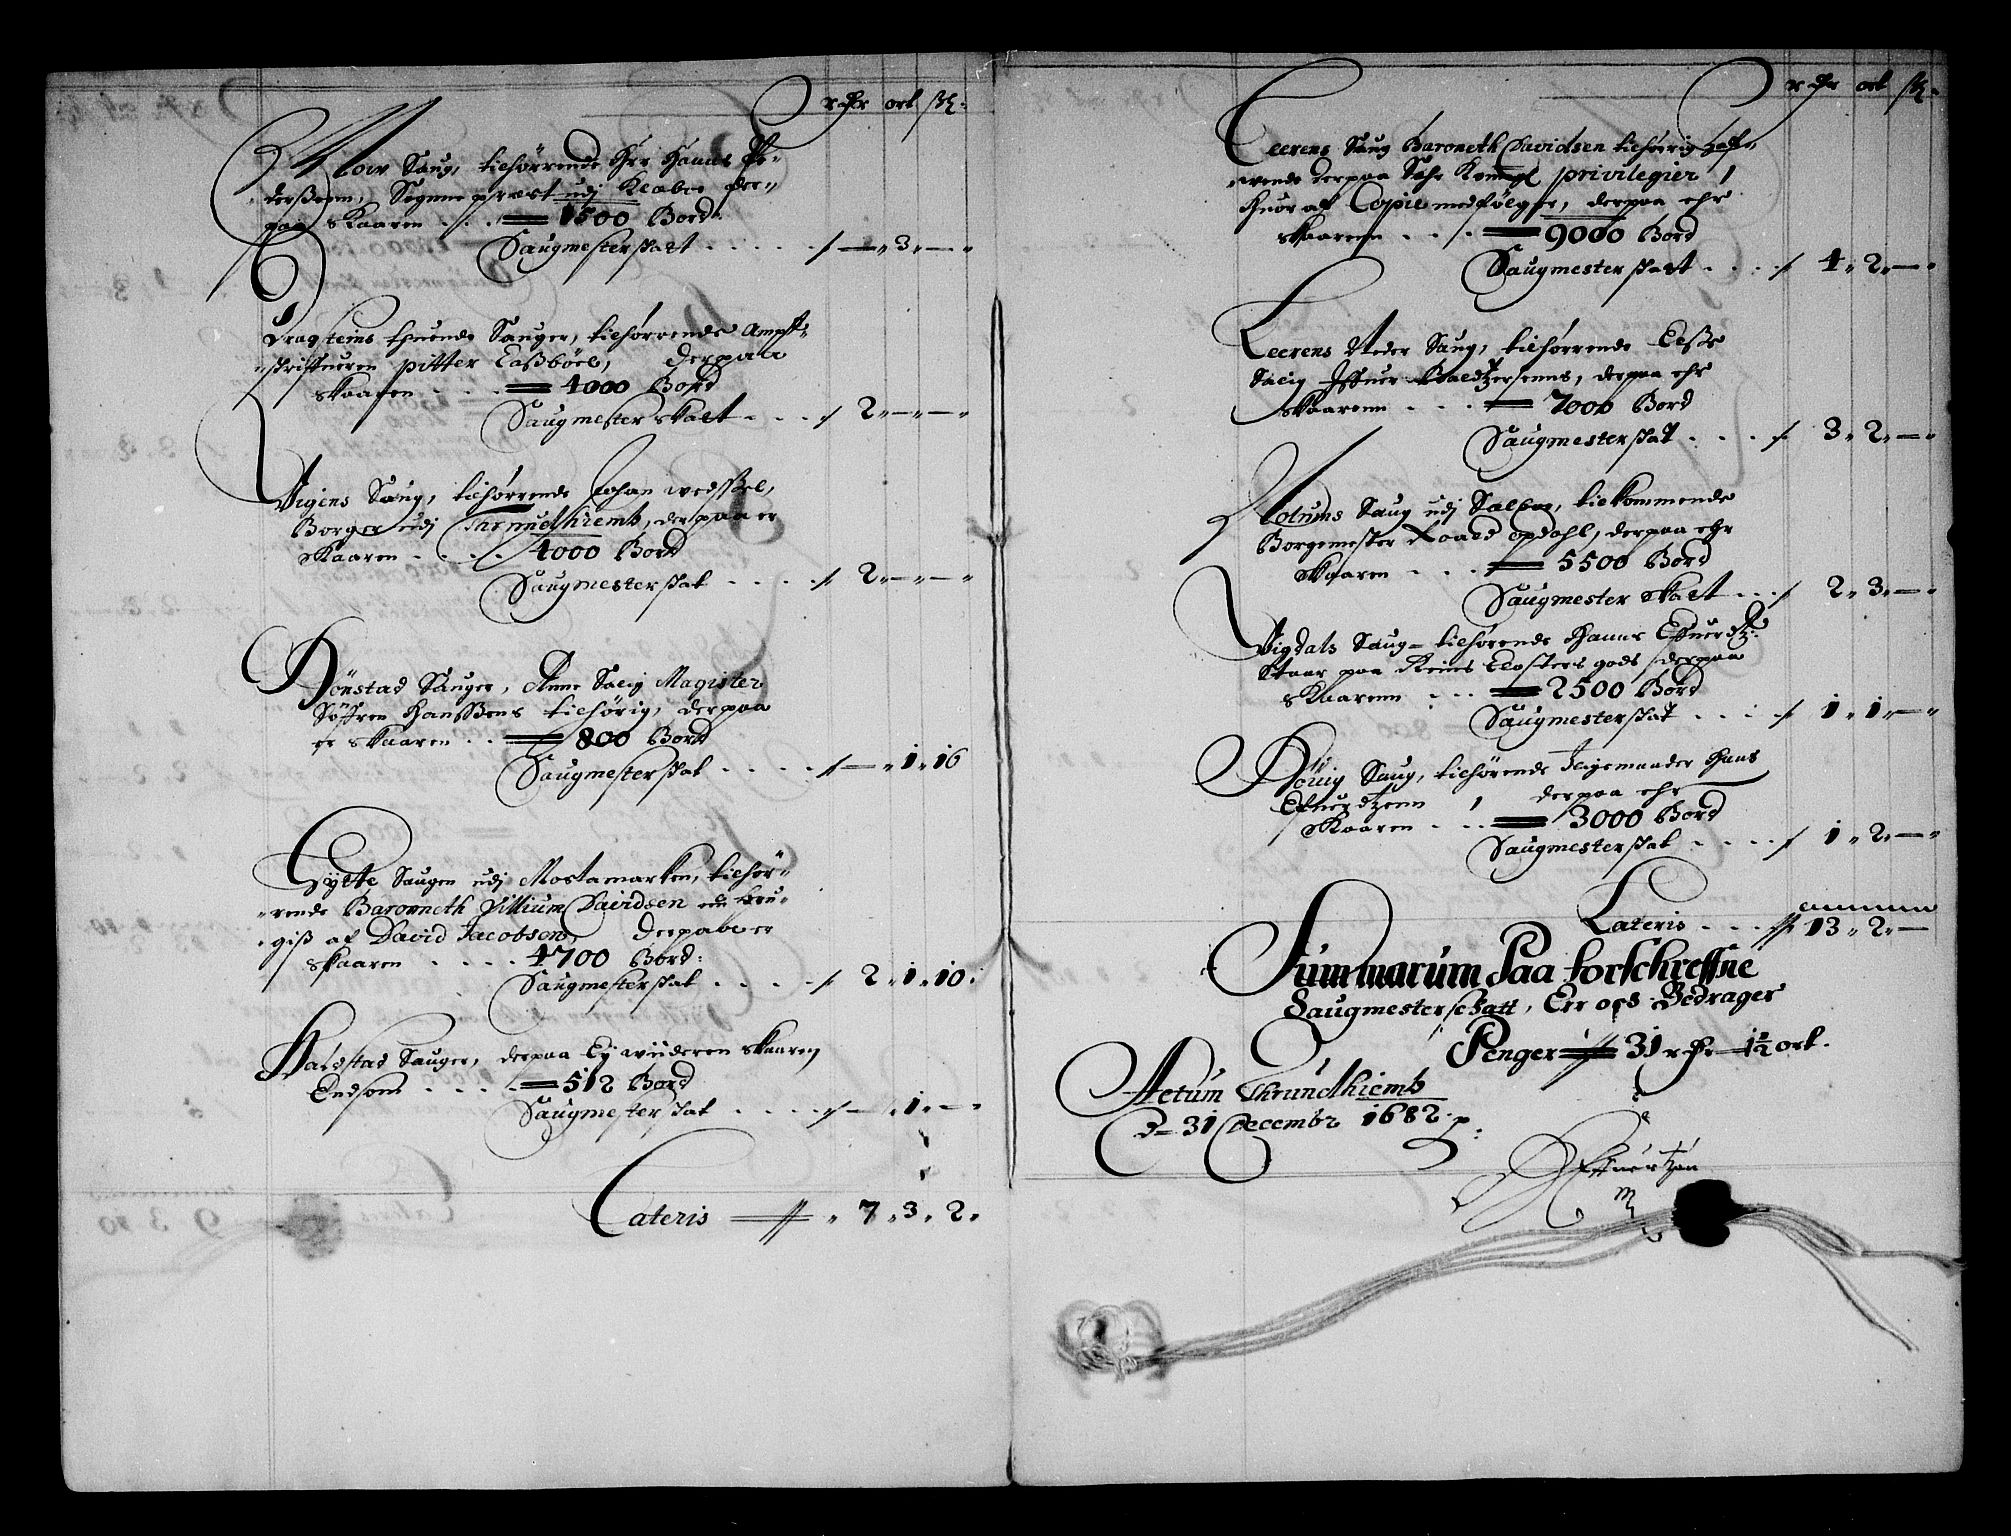 rdr ort sk:
Mour Saug, tilhørrende Her Hanns Pe-
derßenn, Sogne præst udj Klæboe der-
paa skaaren . . . 1500 Bord:
Saugmesterskatt . . . . . — „ 3 „ — „
Dragsteins thuende Sauger, tilhørrende Ampt-
skriffueren pitter Caßbøel, derpaa
skaaren . . . 4000 Bord
Saugmester skatt . . . 2 „ — „ — „
Vigens Saug, tilhørrende Johan wedßel,
Borger udj Thrundhiemb, derpaa er
skaaren . . . . 4000 Bord
Saugmesterskat . . . . 2 „ — „ — „
Hønstad Sauger, Anne Salig Magister
Søffren Hanßens tilhørig, derpaa
er skaaren . . 800 Bord
Saugmesterskat . . . . . — „ 1 „ 16
Gylte Saugen udj Mostamarken, tilhør-
rende Baronneth Villium Davidsen en
giß af David Jacobsen, derpaa er
skaaren . . . . . 4700 Bord:
Saugmesterskat . . . . 2 „ 1 „ 10.
Haldstad Sauger, derpaa Ey wiideren skaaren
Endsom . . . . 512 Bord
Saugmesterskat . . . . . — „ 1 „ — „
Lateris 7 „ 3 „ 2 „
rdr ort sk.
Leerens Saug Baroneth Davidsen tilhørig haf-
wende derpaa Sær Kongl privilegier,
huor af Copie medfølger, derpaa ehr
skaarenn . . . 9000 Bord
Saugmesterskatt . . . . 4 „ 2 „ — „
Leerens Neder Saug, tilhørrende Elße
Salig Iffuer Baldtzersenns, derpaa ehr
skaarenn . . . 7000 Bord
Saugmesterskat . . . . 3 „ 2 „ — „
Motrums Saug udj Sælboe, tilkommende
Borgemester Roald opdahl, derpaa ehr
skaaren . . . 5500 Bord
Saugmester skatt . . . 2 „ 3 „ — „
Vigdals Saug tilhørende Hanns Effuerdtz:
Staar paa Reins Closters gods derpaa
skaarenn . . . 2500 Bord
Saugmesterskat . . . . 1 „ 1 „ — „
Hønig Saug, tilhørende Hans
Effuerdtzenn, derpaa ehr
skaaren . . . 3000 Bord
Saugmesterskat . . . . 1 „ 2 „ — „
Lateris . . . 13 „ 2 „ —
Summarum Paa forschreffne
Saugmesterschatt, Er och Bedrager
Penger 31 rdr — 1½ ort.
Actum Thrundhiemb
D 31 Decembr 1682 p:
Effuertzøn